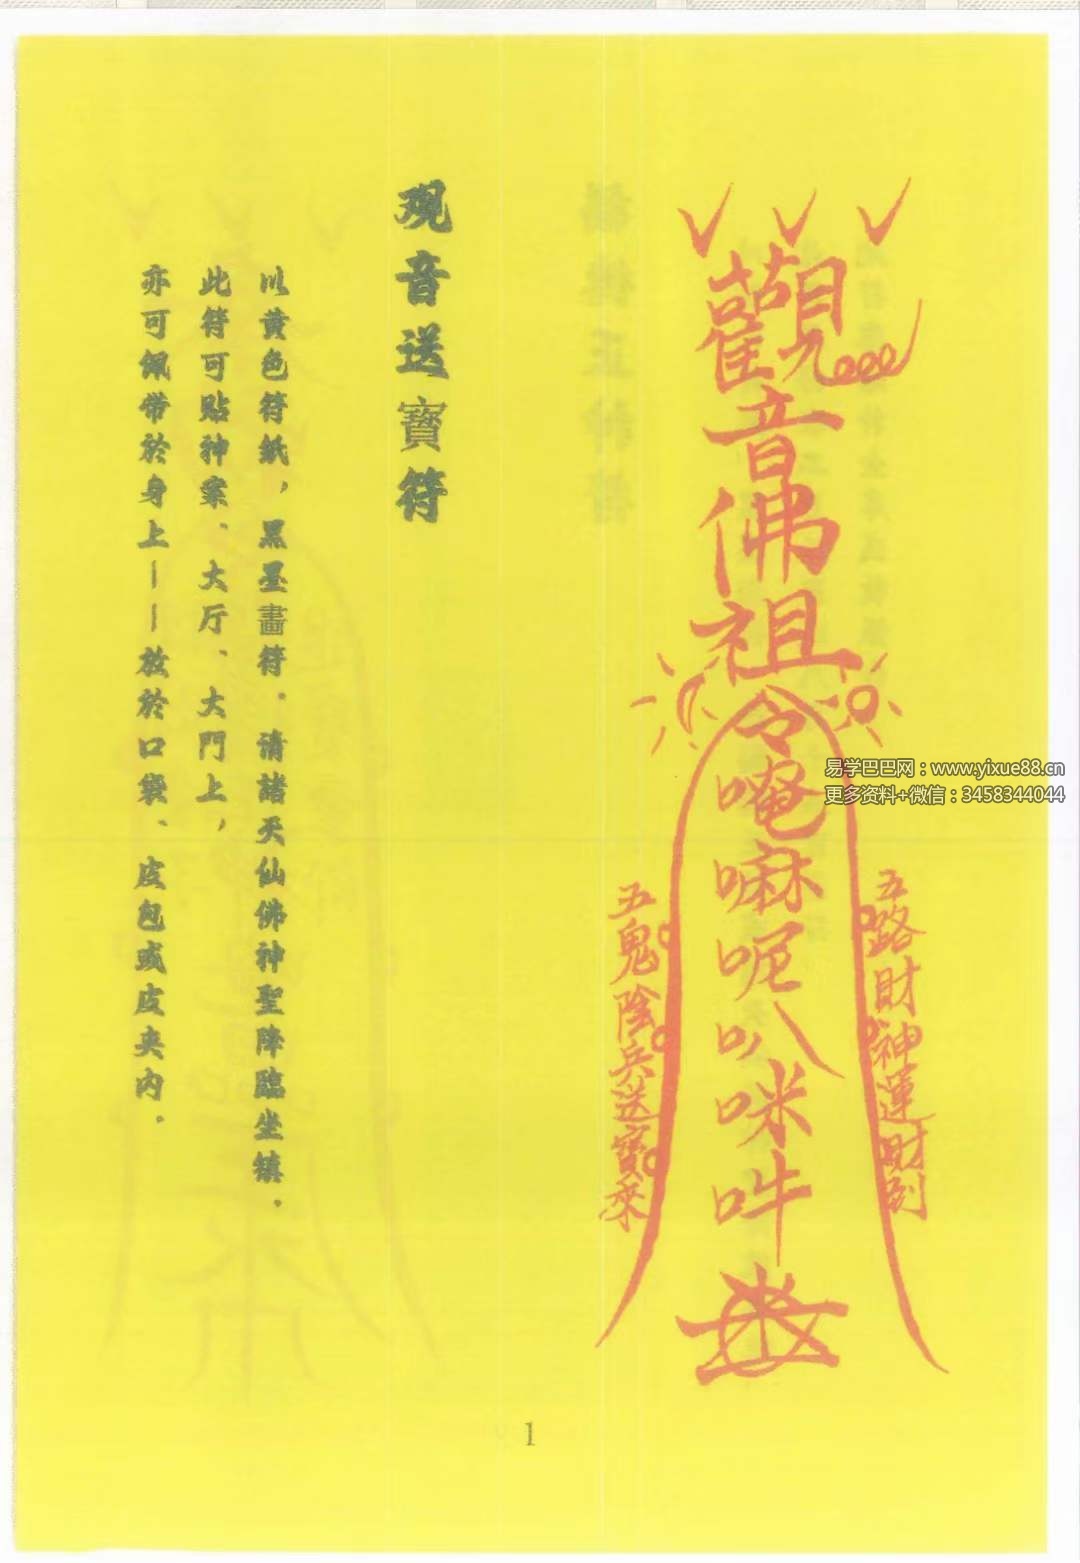 觀音佛祖
令唵嘛呢叭咪吽
五路財神運財到
五鬼陰兵送寶來
观音送寶符
以黄色符紙，黑墨畵符．请諸天仙佛神聖降臨坐镇．
此符可贴神案、大厅、大門上，
亦可佩带於身上——放於口袋、皮包或皮夹内．
1
易学巴巴网：www.yixue88.cn
更多资料+微信：3458344044